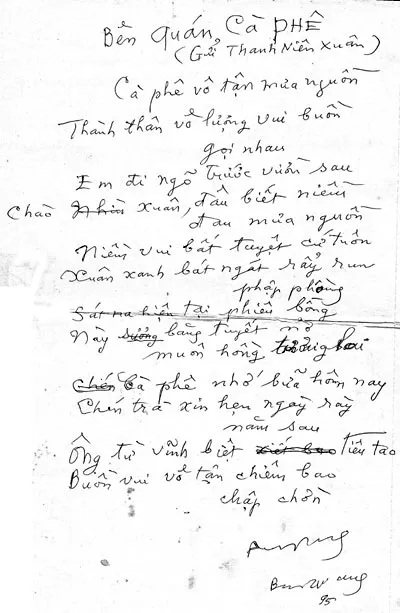 Bên Quán Cà Phê
(Gửi Thanh Niên Xuân)
Cà phê vô tận mưa nguồn
Thành thân vô lượng vui buồn
gọi nhau
Em đi ngõ trước vườn sau
Chào xuân, đâu biết niềm
đau mưa nguồn
Niềm vui bất tuyệt cứ tuôn
Xuân xanh bát ngát rẩy run
phập phồng
tại phiêu bồng
Này băng tuyết nở
muôn hồng
Cà phê nhớ bữa hôm nay
Chén trà xin hẹn ngày rày
năm sau
Ông từ vĩnh biệt Tiêu tao
Buồn vui vô tận chiêm bao
chập chờn
95